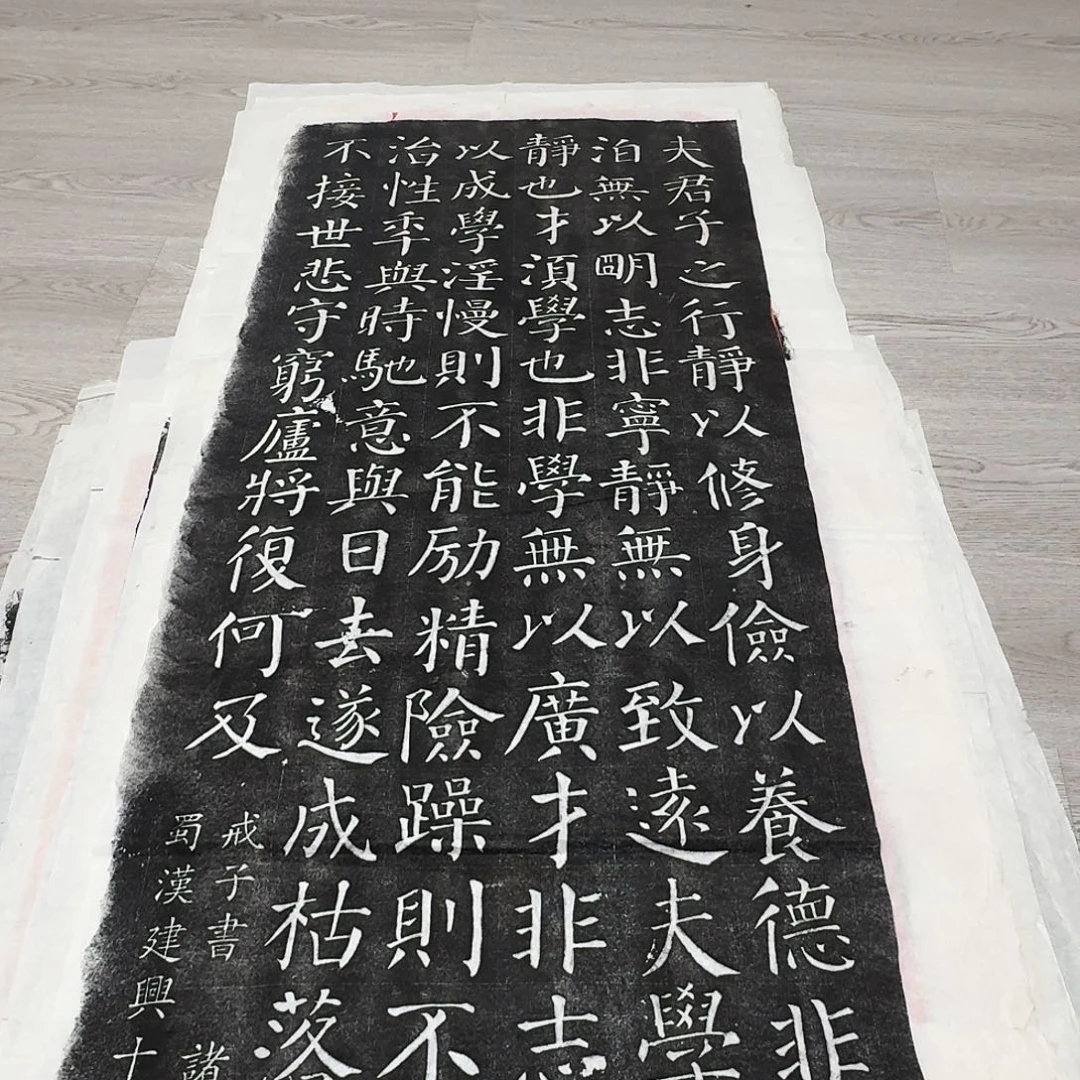 夫君子之行靜以修身儉以養德非
泊無以朙志非寧靜無以致遠夫學
靜也才湏學也非學無以廣才非志
以成學淫慢則不能励精險躁則不
治性秊與時馳意與日去遂成枯落
不接世悲守窮廬將復何及
戒子書 諸
蜀漢建興十